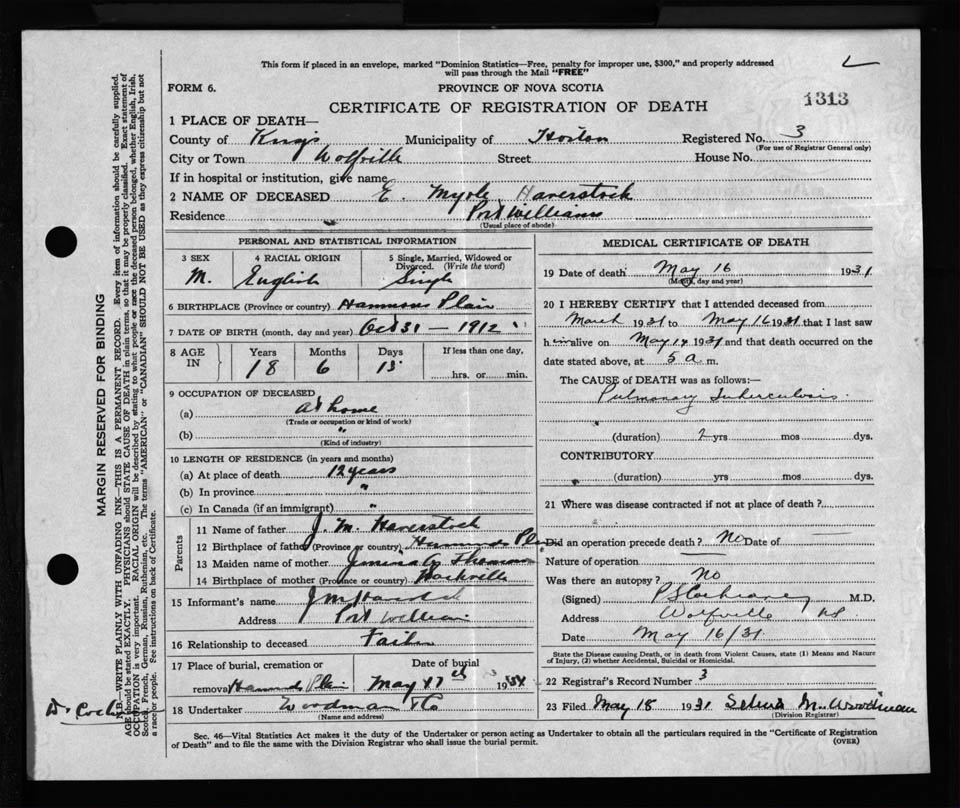 This form if placed in an envelope, marked "Dominion Statistics—Free, penalty for improper use, $300," and properly addressed
will pass through the Mail "FREE"
FORM 6.
PROVINCE OF NOVA SCOTIA
CERTIFICATE OF REGISTRATION OF DEATH
1313
1 PLACE OF DEATH—
County of Kings Municipality of Horton Registered No. 3
(For use of Registrar General only)
City or Town Wolfville Street House No.
If in hospital or institution, give name
2 NAME OF DECEASED E. Myrle Haverstock
Residence Port Williams
(Usual place of abode)
PERSONAL AND STATISTICAL INFORMATION
3 SEX 4 RACIAL ORIGIN 5 Single, Married, Widowed or
Divorced. (Write the word)
M. English Single
6 BIRTHPLACE (Province or country) Hammons Plain
7 DATE OF BIRTH (month, day and year) Oct 31 — 1912
8 AGE IN Years Months Days If less than one day,
18 6 15 hrs. or min.
9 OCCUPATION OF DECEASED
(a) at home
(Trade or occupation or kind of work)
(b) "
(Kind of industry)
10 LENGTH OF RESIDENCE (in years and months)
(a) At place of death 12 years
(b) In province "
(c) In Canada (if an immigrant) "
Parents
11 Name of father J. M. Haverstock
12 Birthplace of father (Province or country) Hammonds Plain
13 Maiden name of mother Thomson
14 Birthplace of mother (Province or country)
15 Informant's name J M Haverstock
Address Port William
16 Relationship to deceased Father
17 Place of burial, cremation or Date of burial
removal Hammonds Plain May 17th 1931
18 Undertaker Woodman & Co
(Name and address)
MEDICAL CERTIFICATE OF DEATH
19 Date of death May 16 1931
(Month, day and year)
20 I HEREBY CERTIFY that I attended deceased from
March 1931 to May 16 1931 that I last saw
him alive on May 14 1931 and that death occurred on the
date stated above, at 5 a m.
The CAUSE of DEATH was as follows:—
Pulmonary Tuberculosis.
(duration) 2 yrs mos dys.
CONTRIBUTORY
(duration) yrs mos dys.
21 Where was disease contracted if not at place of death?
Did an operation precede death? No Date of
Nature of operation
Was there an autopsy? No
(Signed) P S Cochrane M.D.
Address Wolfville NS
Date May 16/31
State the Disease causing Death, or in death from Violent Causes, state (1) Means and Nature
of Injury, (2) whether Accidental, Suicidal or Homicidal.
22 Registrar's Record Number 3
23 Filed May 18 1931 M. Woodman
(Division Registrar)
Sec. 46—Vital Statistics Act makes it the duty of the Undertaker or person acting as Undertaker to obtain all the particulars required in the "Certificate of Registration
of Death" and to file the same with the Division Registrar who shall issue the burial permit.
(OVER)
MARGIN RESERVED FOR BINDING
N.B.—WRITE PLAINLY WITH UNFADING INK—THIS IS A PERMANENT RECORD. Every item of information should be carefully supplied.
AGE should be stated EXACTLY. PHYSICIANS should STATE CAUSE OF DEATH in plain terms, so that it may be properly classified. Exact statement of
OCCUPATION is very important. RACIAL ORIGIN will be described by stating to what people or race the deceased person belonged, whether English, Irish,
Scotch, French, German, Russian, Ruthenian, etc. The terms "AMERICAN" or "CANADIAN" SHOULD NOT BE USED as they express citizenship but not
a race or people. See instructions on back of Certificate.